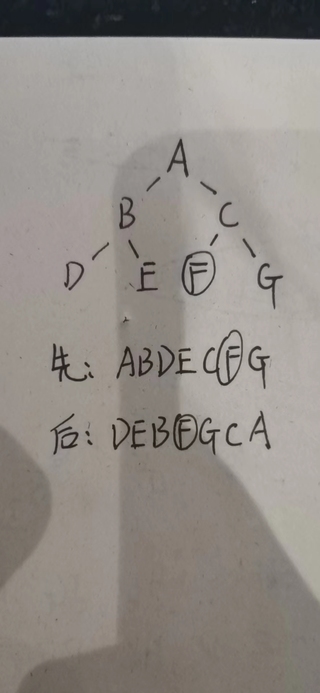 A
B C
D E F G
先: ABDECFG
后: DEBFGCA